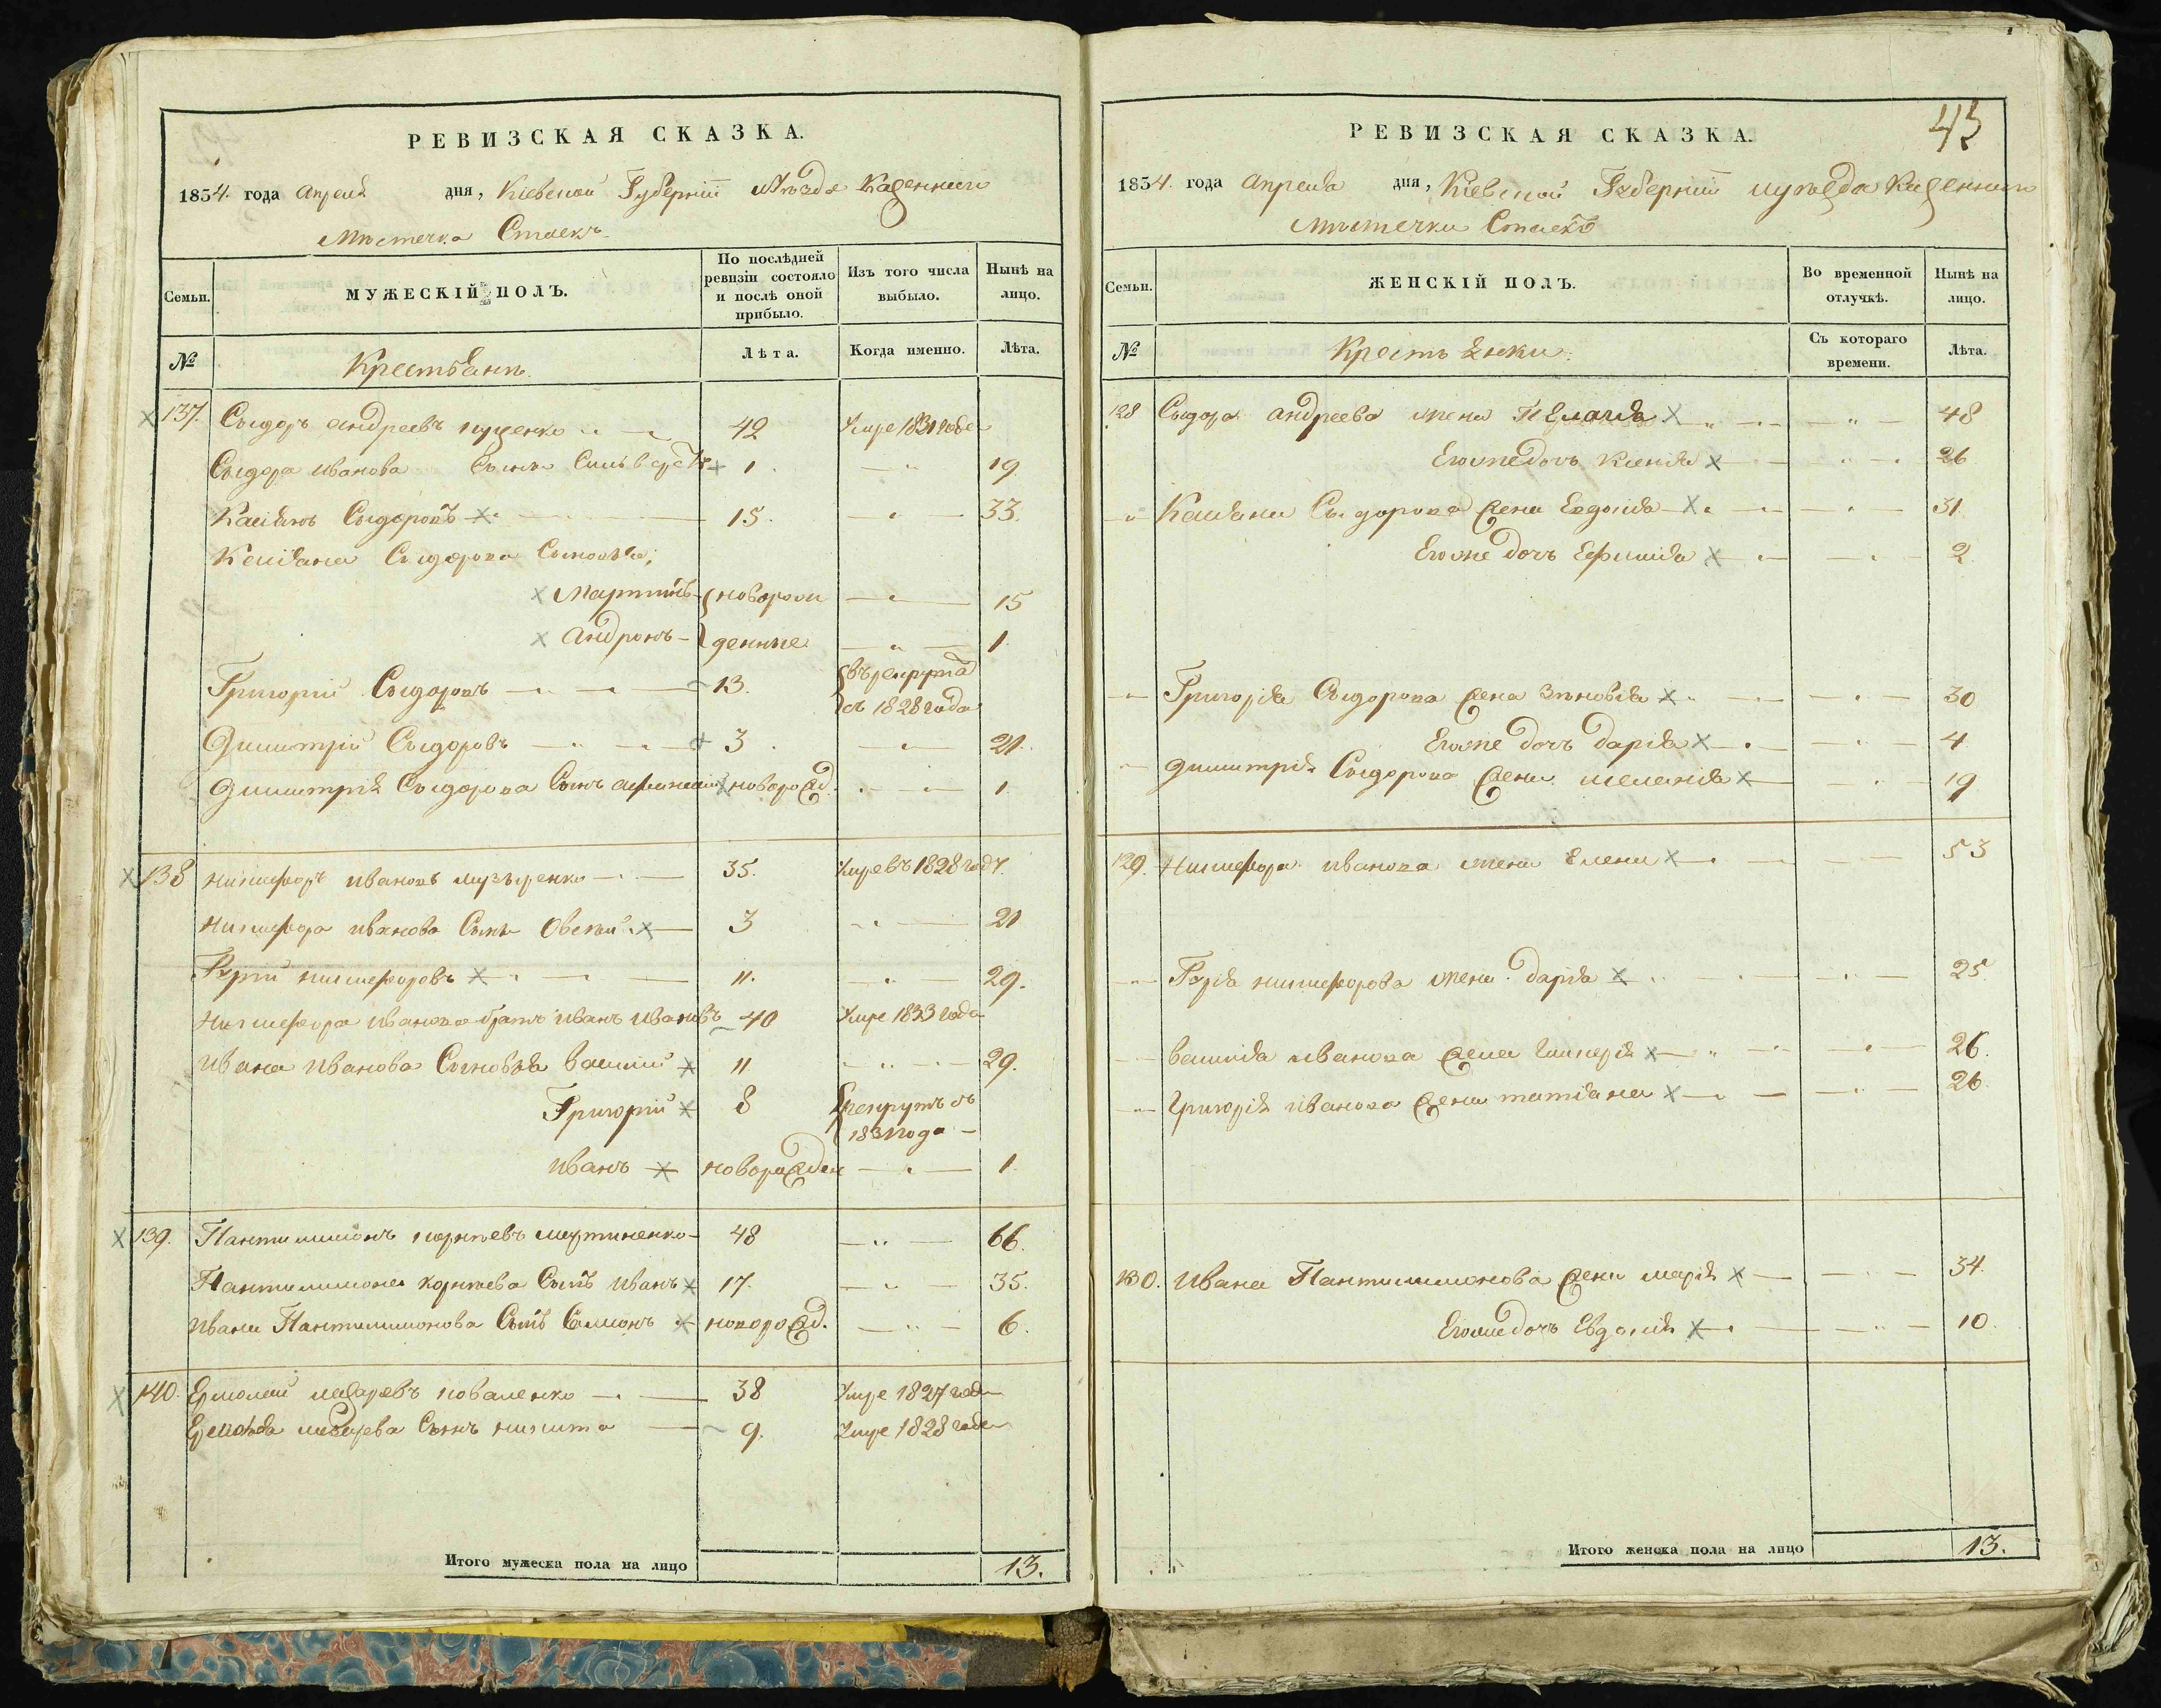 РЕВИЗСКАЯ СКАЗКА.
1834. года Апреля дня, Кіевской Губерніи Уѣзда Казеннаго
Мѣстечка Стаекъ
Семьи.
МУЖЕСКІЙ ПОЛЪ.
По послѣдней ревизіи состояло и послѣ оной прибыло.
Изъ того числа выбыло.
Нынѣ на лицо.
№
Крестьянъ
Лѣта.
Когда именно.
Лѣта.
137. Сыдоръ андреевъ 42 Умре 1831 года
Сыдора иванова Сынъ 1 19
Касіянъ Сыдоровъ 15. 33.
Касіяна Сыдорова Сыновья;
Мартинъ новорож 15
андронъ денные 1
Григорій Сыдоровъ 13. въ рекрутахъ
съ 1828 года
Димитрій Сыдоровъ 3. 21.
Димитрія Сыдорова Сынъ афанасій новорожд. 1
138 никифоръ ивановъ 35. Умре въ 1828 году.
никифора иванова Сынъ Овсѣй 3 21
Гурій никифоровъ 11. 29.
никифора иванова братъ иванъ ивановъ 40 Умре 1833 года
ивана иванова Сыновья василій 11 29.
Григорій 8 рекрутъ съ
1831 года
иванъ новорожден 1
139. Пантилимонъ корнѣевъ мартиненко 48 66.
Пантилимона корнѣева Сынъ иванъ 17. 35.
ивана Пантилимонова Сынъ Симионъ новорожд. 6.
140. Ермолай лазаревъ коваленко 38 Умре 1827 года
Ермолая лазарева Сынъ никита 9. Умре 1828 года
Итого мужеска пола на лицо 13.
43
РЕВИЗСКАЯ СКАЗКА.
1834. года Апреля дня, Кіевской Губерніи уѣзда Казеннаго
Мѣстечка Стаекъ
Семьи.
ЖЕНСКІЙ ПОЛЪ.
Во временной отлучкѣ.
Нынѣ на лицо.
№
Крестьянки
Съ котораго времени.
Лѣта.
128 Сыдора андреева жена Пелагія 48
Егоже дочь Ксенія 26
Касіяна Сыдорова жена Евдокія 31
Егоже дочь Ефимія 2
Григорія Сыдорова жена Зѣновія 30
Егоже дочь дарія 4
Димитрія Сыдорова жена меланія 19
129. Никифора иванова жена Елена 53
Гурія никифорова жена дарія 25
василія иванова жена 26.
Григорія иванова жена татіяна 26
130. Ивана Пантилимонова жена марія 34.
Егоже дочь Евдокія 10.
Итого женска пола на лицо 13.